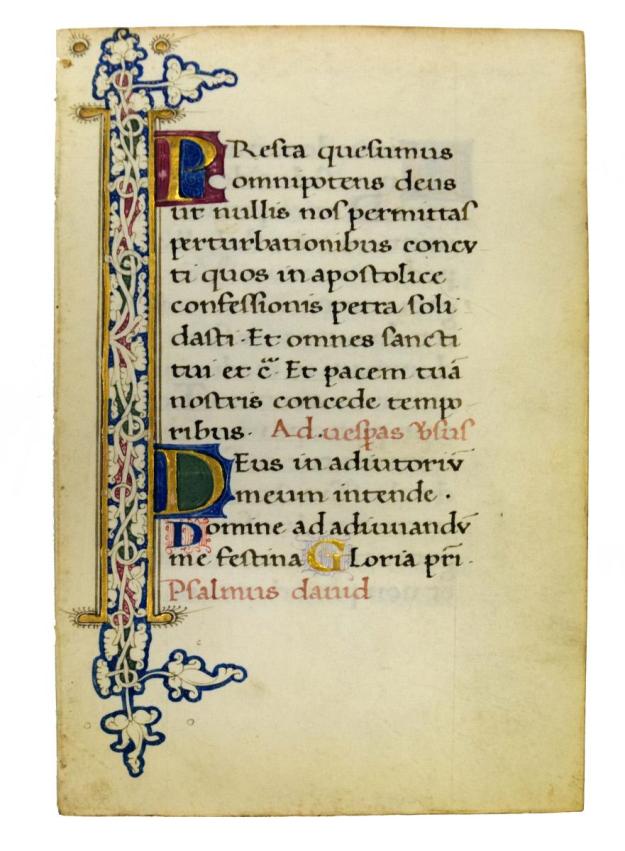 PResta quesumus
omnipotens deus
ut nullis nos permittas
perturbationibus concu
ti quos in apostolice
confessionis petra soli
dasti · Et omnes sancti
tui et c̄ · Et pacem tuā
nostris concede tempo
ribus · Ad uesp̄as v̄sus
DEus in adiutoriū
meum intende ·
Domine ad adiuuandū
me festina GLoria pr̄i ·
Psalmus dauid